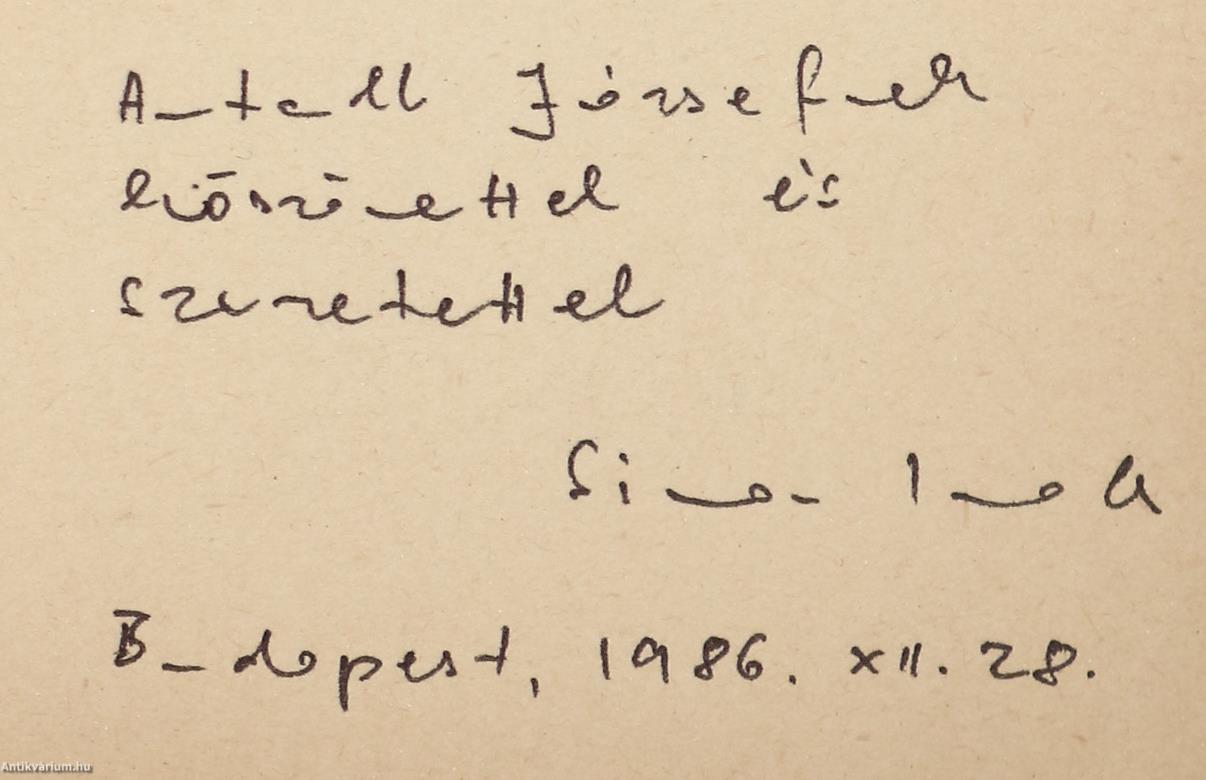 Antall Józsefnek
köszönettel és
szeretettel
Simon
Budapest, 1986. XII. 28.
Antikvárium.hu